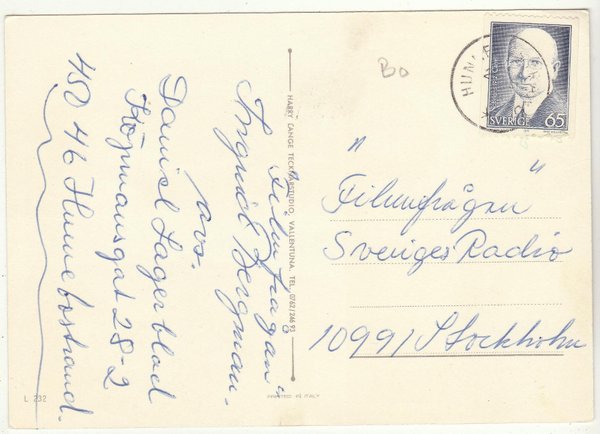 "Filmfrågan"
Ingrid Bergman.
Avs.
Daniel Lagerblad
Köpmansgat 28-2
450 46 Hunnebostrand.
HARRY LANGE TECKNARSTUDIO, VALLENTUNA. TEL. 0762/246 93
L. 232
PRINTED IN ITALY
BO
SVERIGE 65
"Filmfrågan"
Sveriges Radio
10991 Stockholm